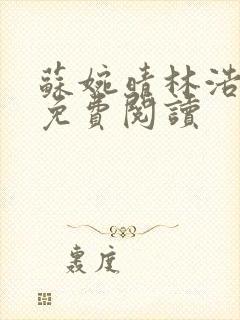 蘇婉晴林浩
免費閱讀
轰度